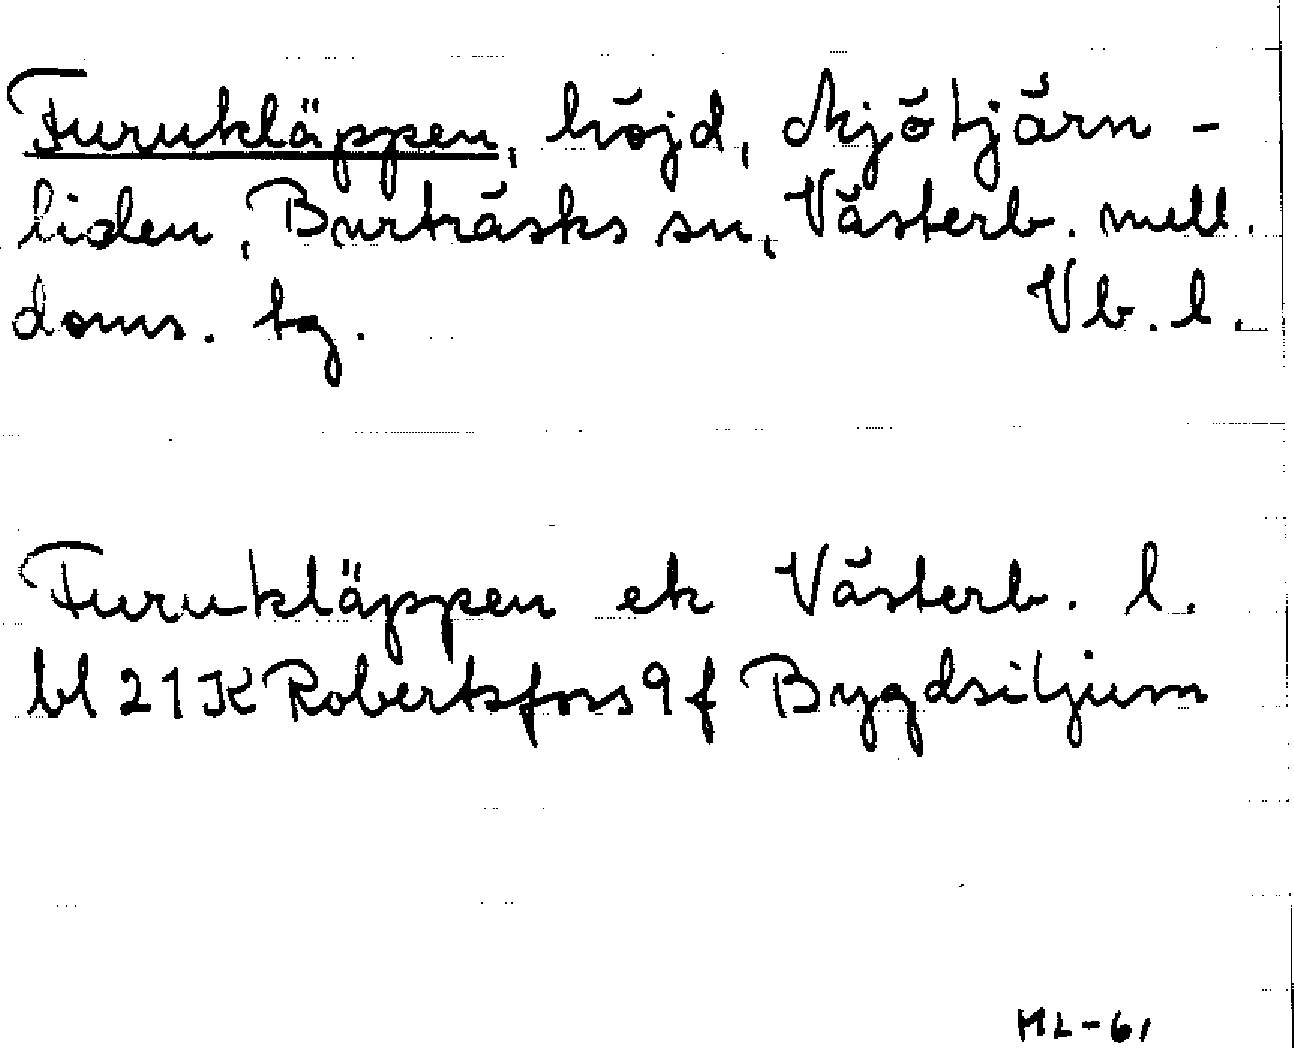 Furukläppen, höjd, Mjötjärn-
liden, Burträsks sn, Västerb. mell.
doms. tg. Vb. l.
Furukläppen ek Västerb. l.
bl 21K Robertsfors 9f Bygdsiljum
HL-61